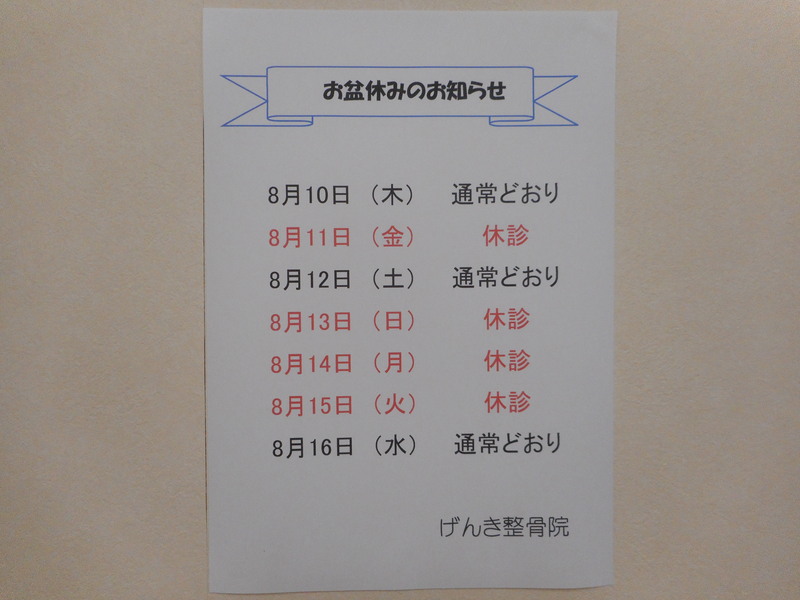 お盆休みのお知らせ
8月10日 （木） 通常どおり
8月11日 （金） 休診
8月12日 （土） 通常どおり
8月13日 （日） 休診
8月14日 （月） 休診
8月15日 （火） 休診
8月16日 （水） 通常どおり
げんき整骨院